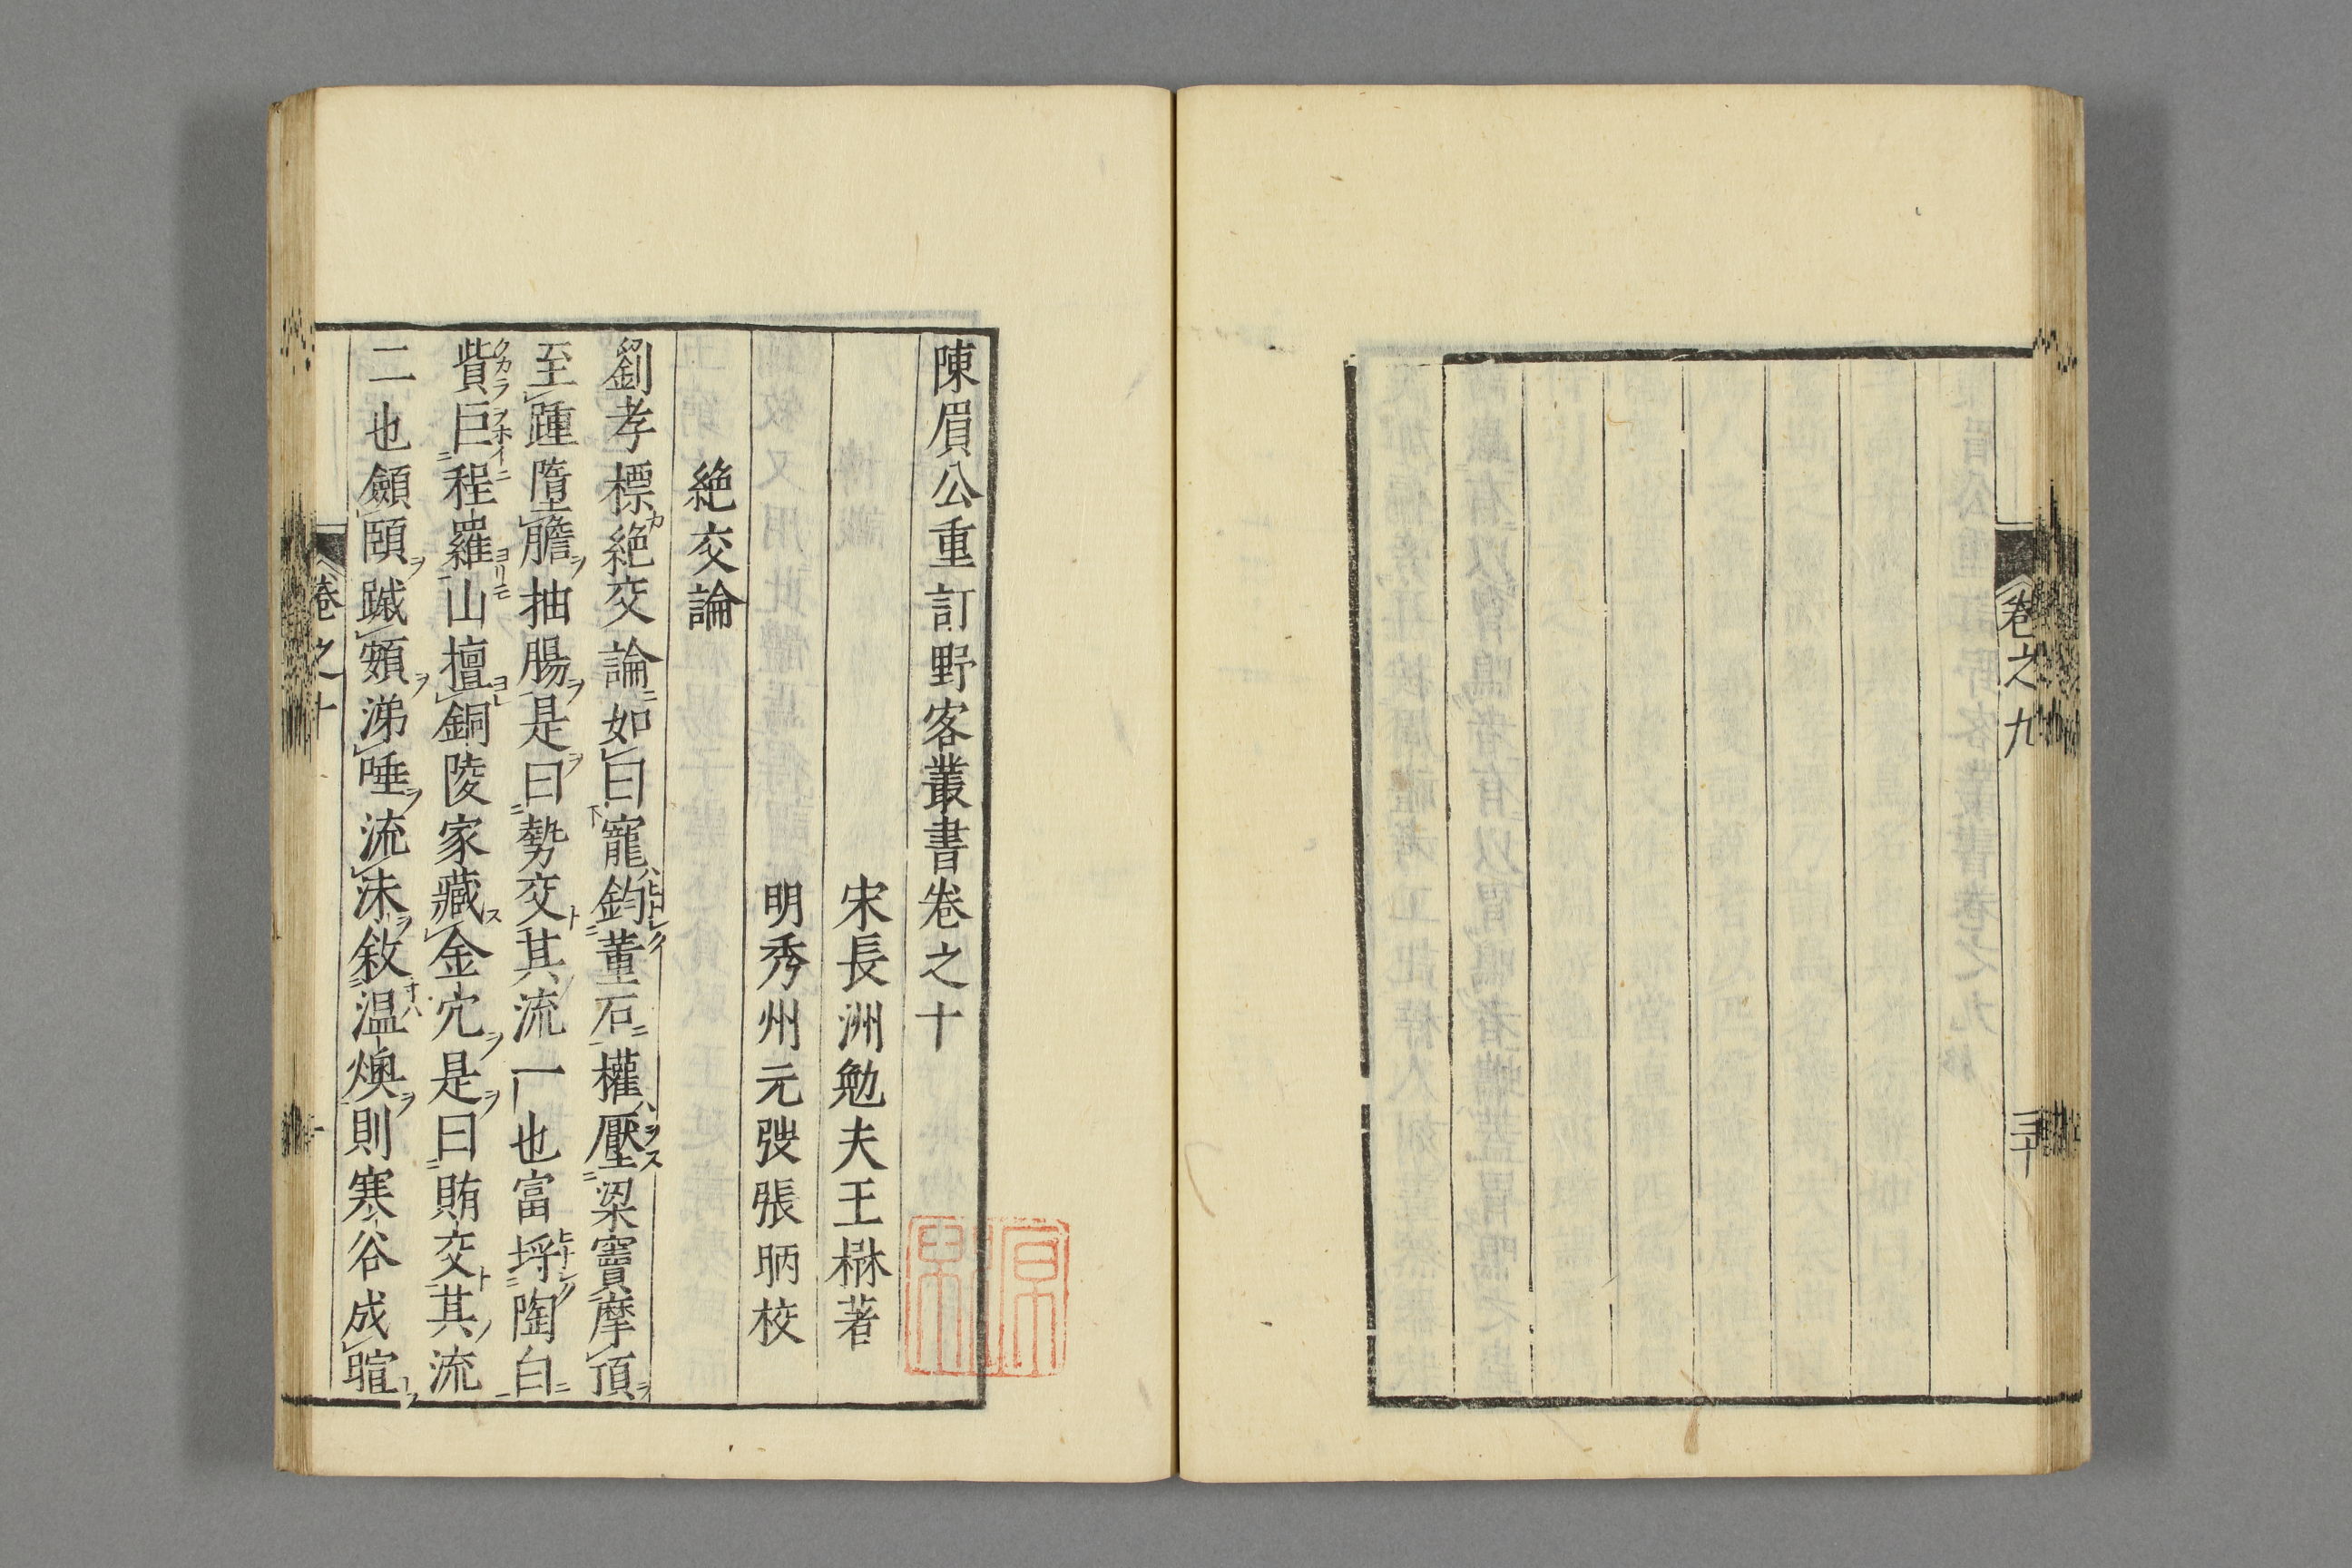 卷之九
三十
陳眉公重訂野客叢書卷之十
宋長洲勉夫王楙著
明秀州元弢張昞校
絶交論
劉孝標絶交論如曰寵鈞董石權壓梁竇摩頂
至踵隳膽抽腸是曰勢交其流一也富埒陶白
貲巨程羅山擅銅陵家藏金穴是曰賄交其流
二也顩頤蹙頞涕唾流沬敘温燠則寒谷成暄
卷之十
一